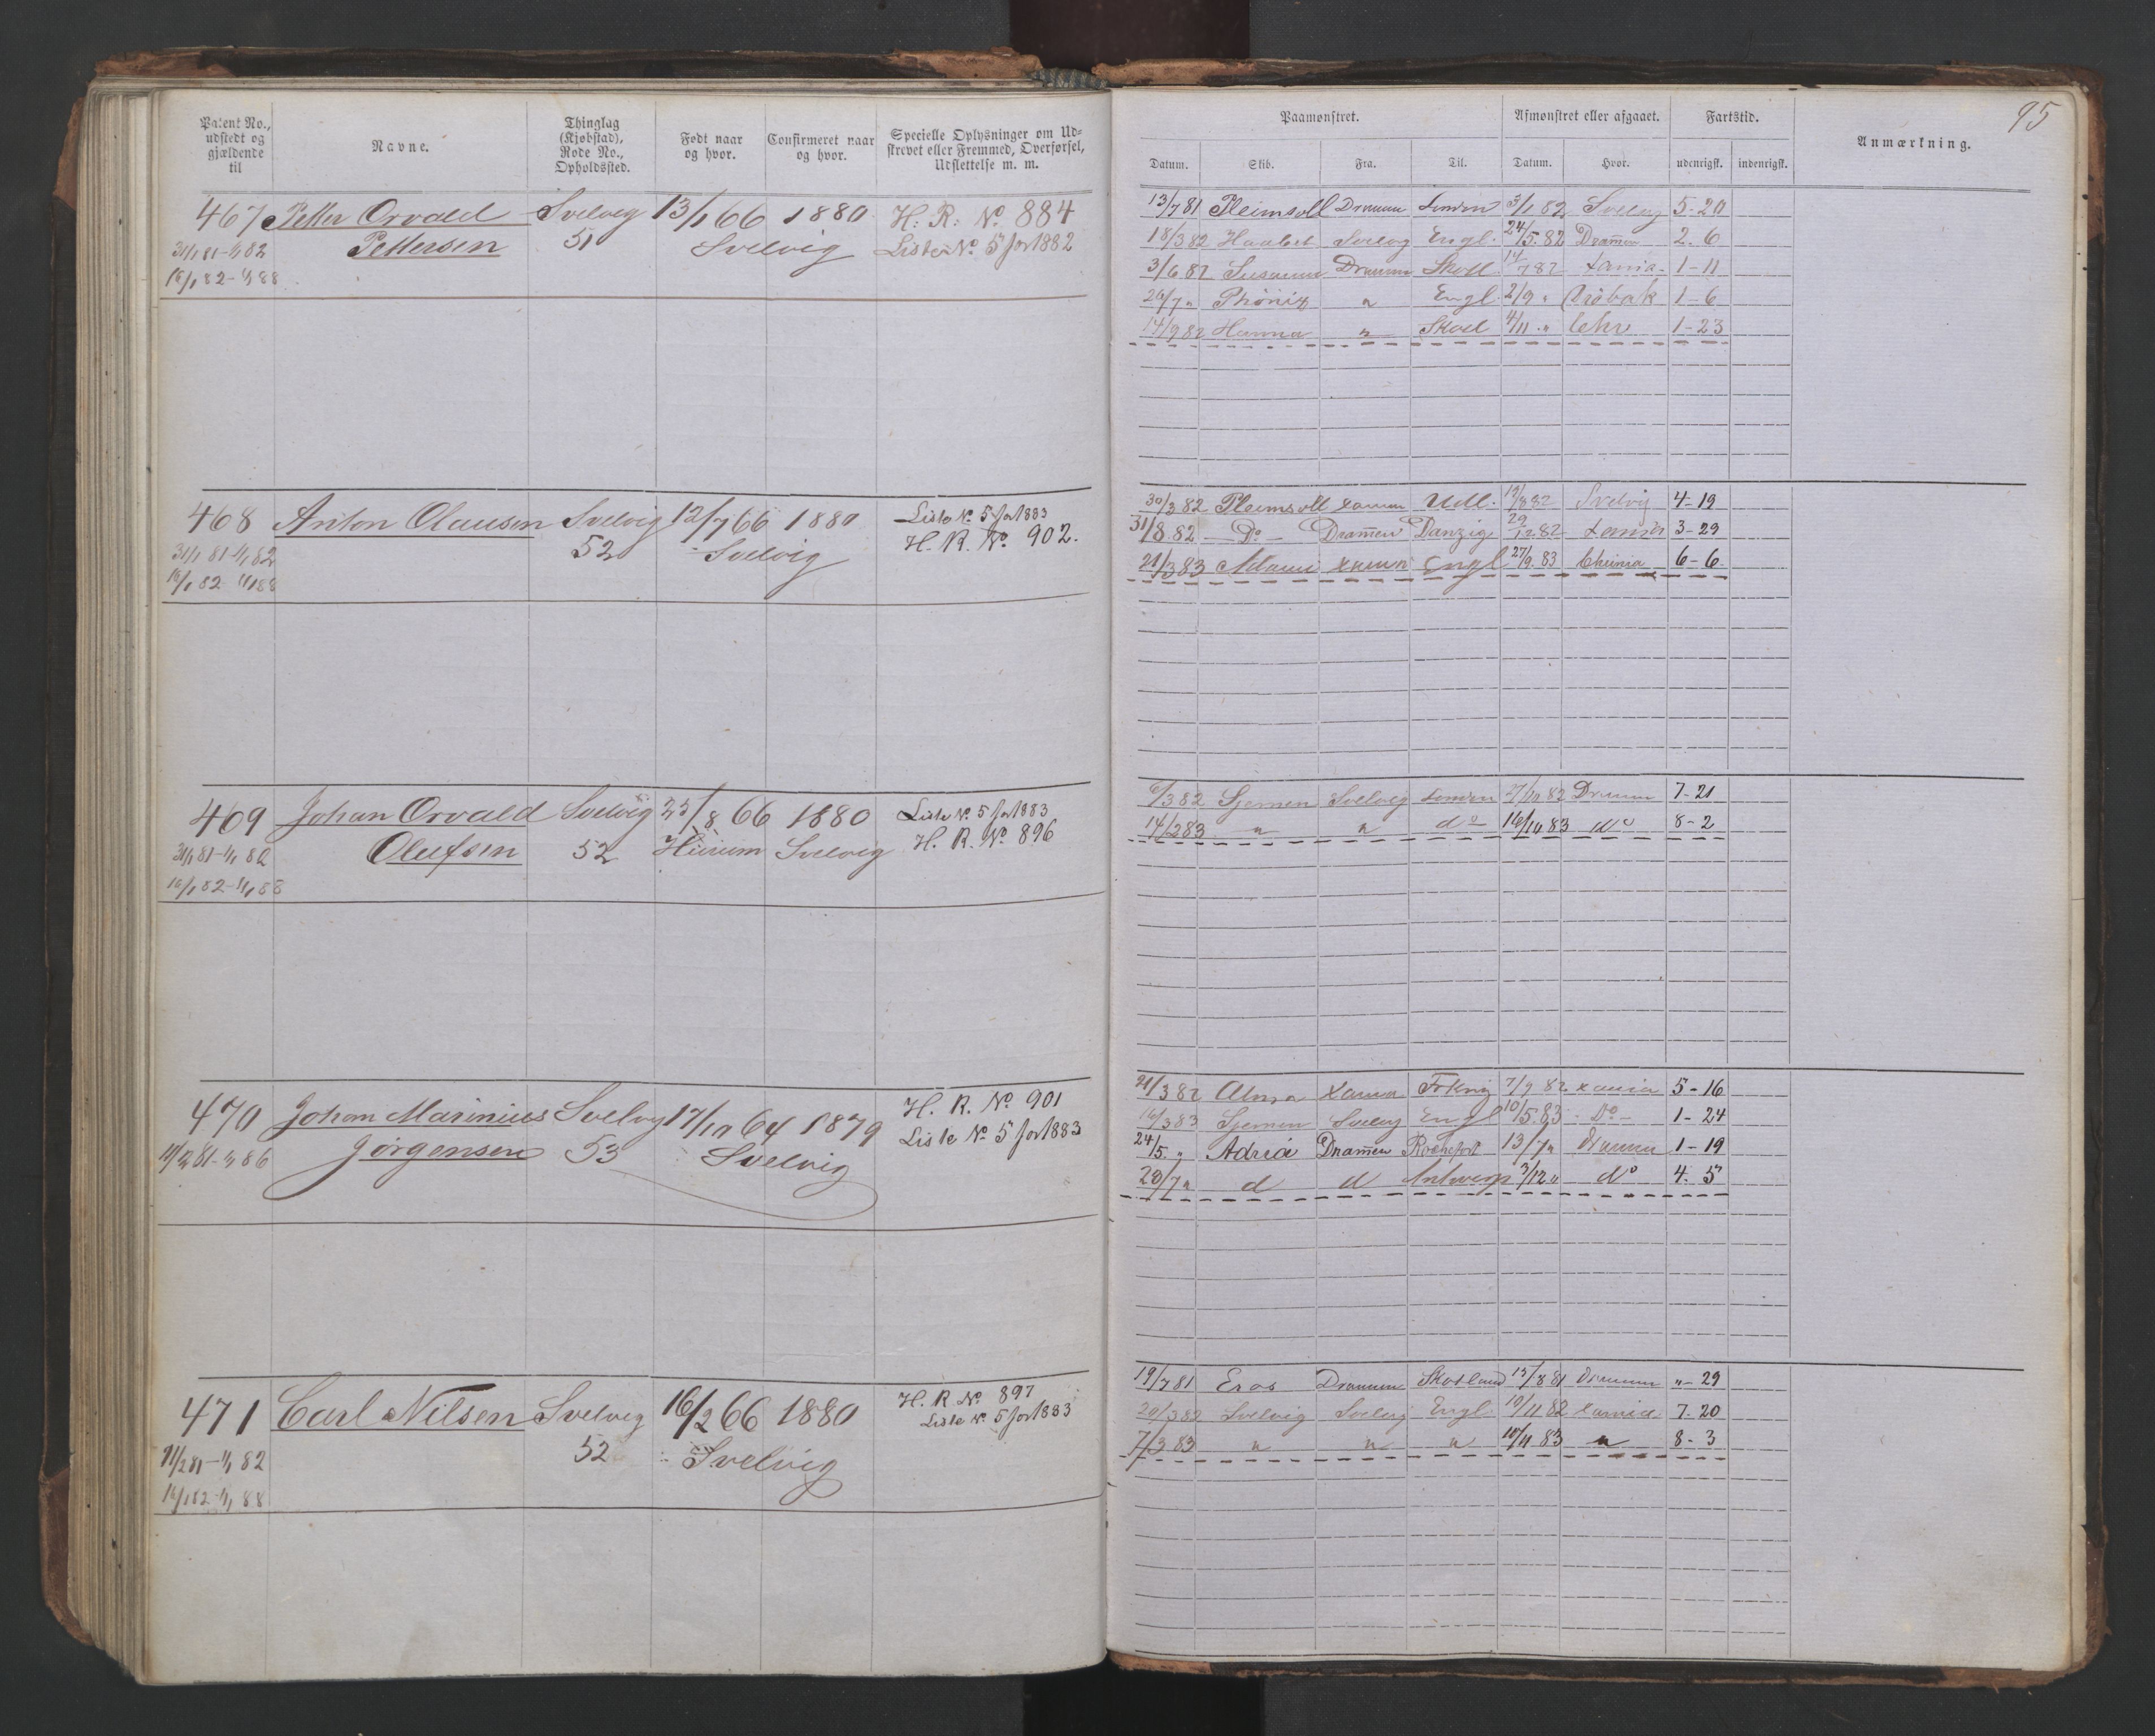 95
Patent No., udstedt og gjældende til
Navne.
Thinglag (Kjøbstad), Rode No., Opholdssted.
Født naar og hvor.
Confirmeret naar og hvor.
Specielle Oplysninger om Udskrevet eller Fremmed, Overførsel, Udslettelse m. m.
Paamønstret.
Afmønstret eller afgaaet.
Fartstid.
Anmærkning.
Datum. Skib. Fra. Til. Datum. Hvor. udenrigsk. indenrigsk.
467 Petter Orvald Svelvig 13/1 66 1880 H. R. No. 884
31/1 81-1/1 82 Pettersen 51 Svelvig Liste No. 5 for 1882
16/1 82-1/1 88
13/7 81 Pleimsoll Drammen London 3/1 82 Svelvig 5-20
18/3 82 Svelvig Engl. 24/5.82 Drammen 2.6
3/6 82 Susanna Drammen Skotl 14/7 82 Xania 1-11
26/7 " Phönix " Engl. 2/9 " 1-6
14/9 82 Hanna " Skotl 4/11 " Chr 1-23
468 Anton Olausen Svelvig 12/7 66 1880 Liste No. 5 for 1883
31/1 81-1/1 82 52 Svelvig H. R. No. 902.
16/1 82-1/1 88
30/3 82 Pleimsoll Xania Udl. 19/8 82 Svelvig 4-19
31/8.82 -Do- Drammen Danzig 29/12.82 3-29
21/3 83 Xania Engl 27/9.83 6-6
469 Johan Orvald Svelvig 25/8 66 1880 Liste No. 5 for 1883
31/1 81-1/1 82 Olufsen 52 Hurum Svelvig H. R. No. 896
16/1 82-1/1 88
6/3 82 Svelvig London 7/10 82 Drammen 7-21
14/2 83 " " do 16/10 83 do 8-2
470 Johan Marinius Svelvig 17/10 64 1879 H. R. No 901
11/2 81-1/1 86 Jørgensen 53 Svelvig Liste No. 5 for 1883
21/3 82 Alma Xania 7/9 82 Xania 5-16
16/3 83 Svelvig Engl 10/5.83 -Do- 1-24
24/5. " Adria Drammen Rochefort 13/7 " Drammen 1-19
20/7 " d d Antwerp 3/12 " do 4.5
471 Carl Nilsen Svelvig 16/2 66 1880 H. R. No 897
11/2 81-1/1 82 52 Svelvig Liste No. 5 for 1883
16/1 82-1/1 88
19/7 81 Eros Drammen Skotland 15/8 81 Drammen "-29
20/3 82 Svelvig Svelvig Engl 10/11 82 Xania 7.20
7/3 83 " " " 10/11 83 " 8-3